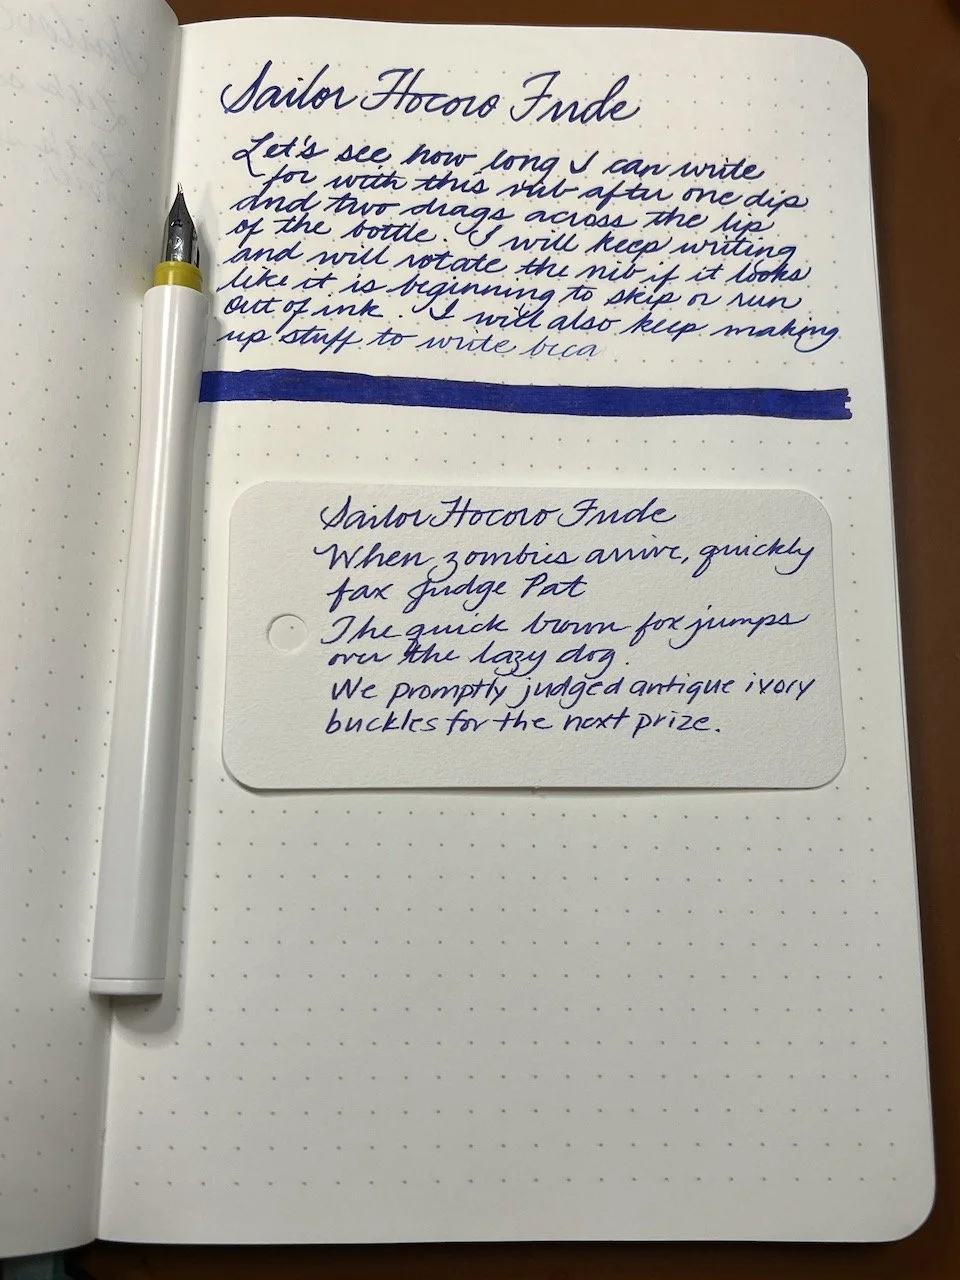 Sailor Hocoro Fude
Let's see how long I can write
for with this nub after one dip
and two drags across the lip
of the bottle. I will keep writing
and will rotate the nib if it looks
like it is beginning to skip or run
out of ink. I will also keep making
up stuff to write beca
Sailor Hocoro Fude
When zombies arrive, quickly
fax Judge Pat
The quick brown fox jumps
over the lazy dog.
We promptly judged antique ivory
buckles for the next prize.